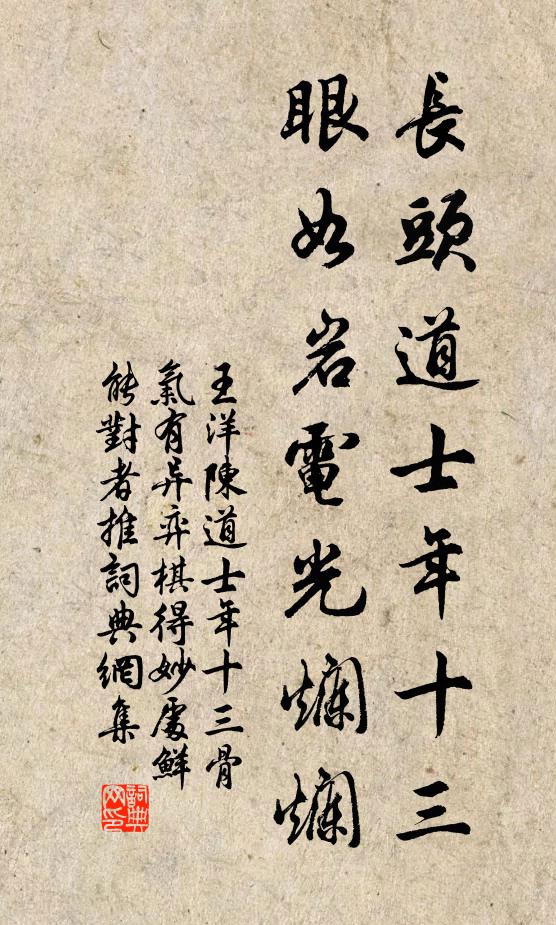 長頭道士年十三
眼如岩電光爛爛
王洋陳道士年十三骨
氣有异弈棋得妙處鮮
能對者推詞典網集
詞典
网印